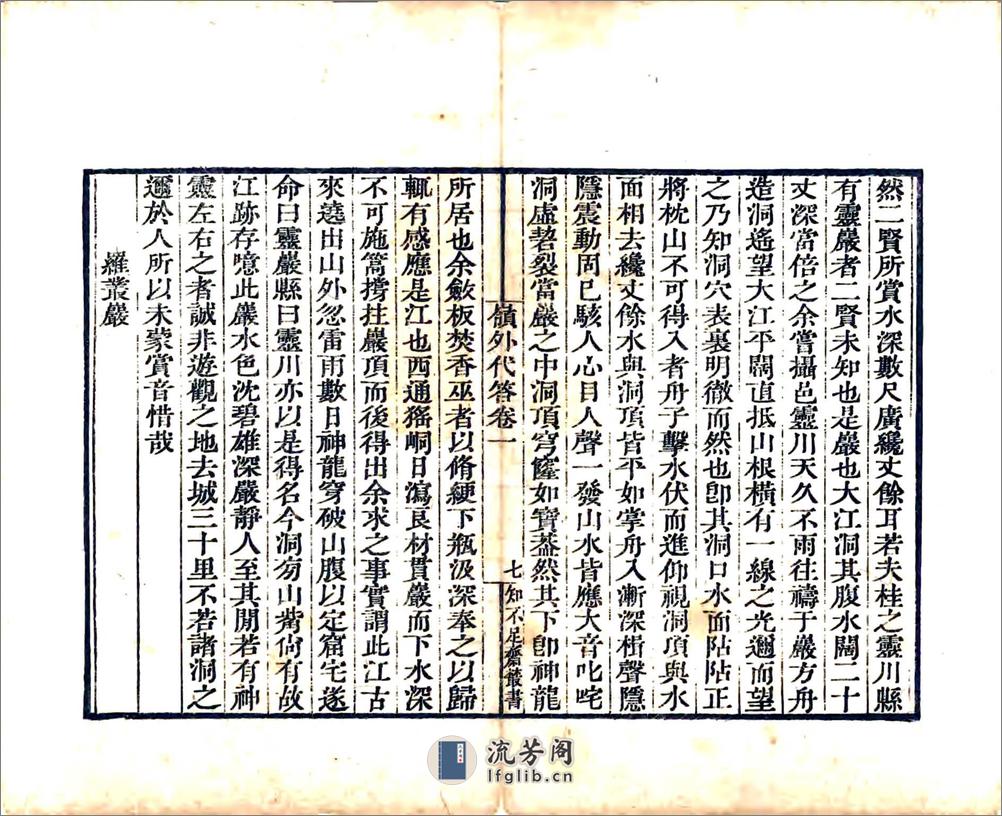 然二賢所賞水深數尺廣纔丈餘耳若夫桂之靈川縣
有靈巖者二賢未知也是巖也大江洞其腹水闊二十
丈深當倍之余嘗攝邑靈川天久不雨往禱于巖方舟
造洞遙望大江平闊直抵山根橫有一線之光邇而望
之乃知洞穴表裏明徹而然也卽其洞口水面阽阽正
將枕山不可得入者舟子擊水伏而進仰視洞頂與水
面相去纔丈餘水與洞頂皆平如掌舟入漸深楫聲隱
隱震動固已駭人心目人聲一發山水皆應大音叱咤
洞虛㓶裂當巖之中洞頂穹窿如寶葢然其下卽神龍
嶺外代答卷一
七
知不足齋叢書
所居也余斂板焚香巫者以脩綆下瓶汲深奉之以歸
輒有感應是江也西通猺峒日瀉良材貫巖而下水深
不可施篙撐拄巖頂而後得出余求之事實謂此江古
來遶出山外忽雷雨數日神龍穿破山腹以定窟宅遂
命曰靈巖縣曰靈川亦以是得名今洞旁山觜尙有故
江跡存噫此巖水色沈碧雄深嚴靜人至其閒若有神
靈左右之者誠非遊觀之地去城三十里不若諸洞之
邇於人所以未蒙賞音惜哉
羅叢巖
流芳阁
lfglib.cn